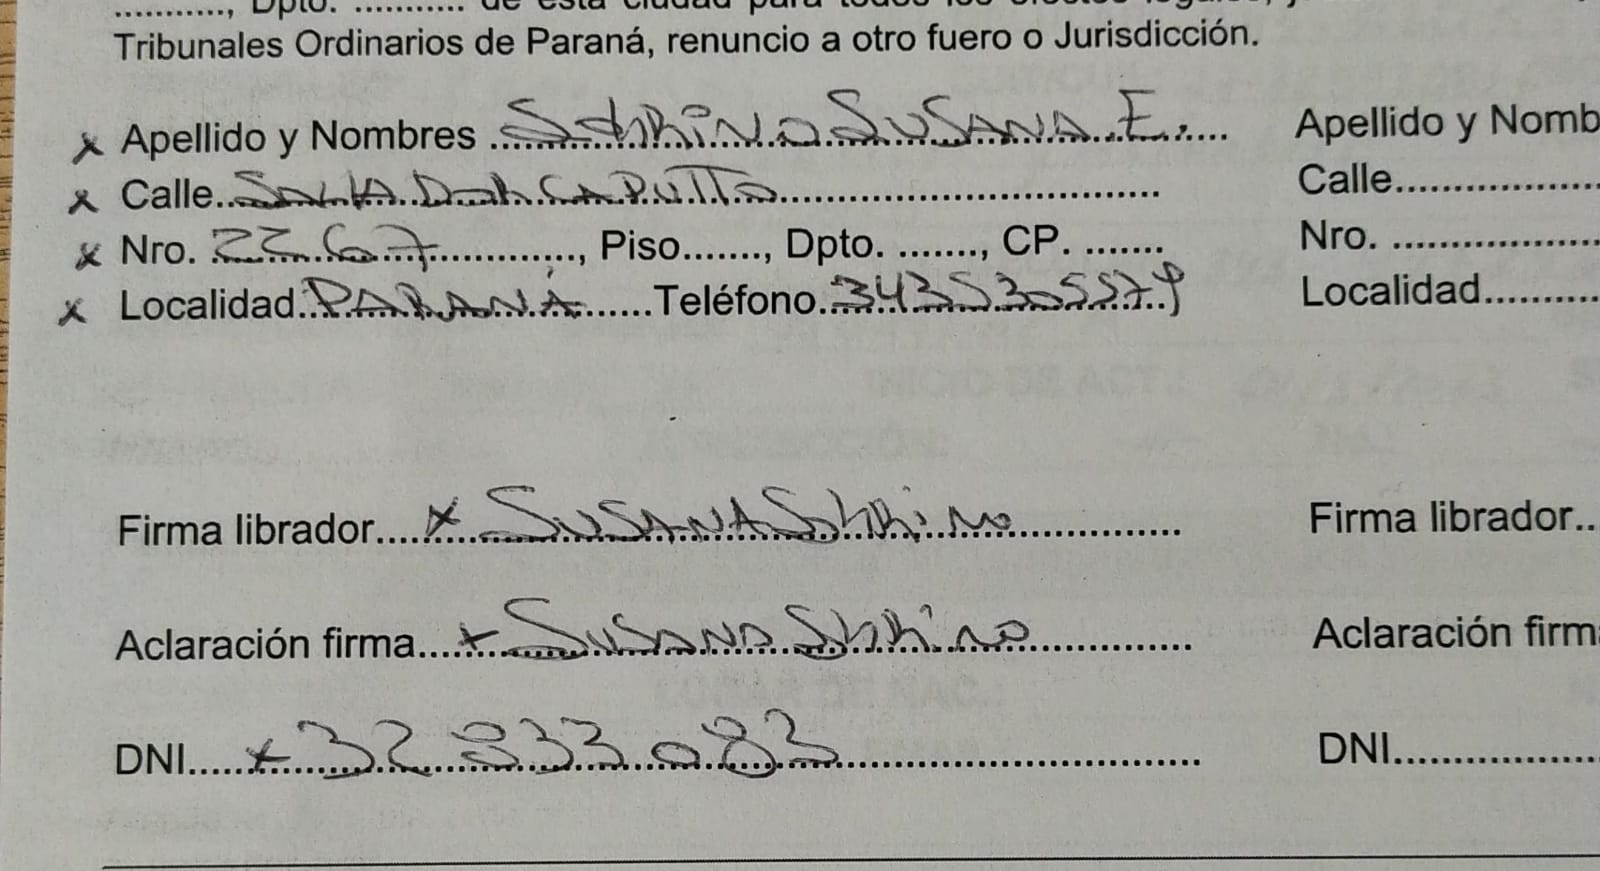 ..........., Dpto. ........... de esta ciudad para todos los efectos legales,
Tribunales Ordinarios de Paraná, renuncio a otro fuero o Jurisdicción.
x Apellido y Nombres SUSANA E. Apellido y Nomb
x Calle CAPUTTO Calle
x Nro. 2267, Piso......., Dpto. ......., CP. ....... Nro.
x Localidad PARANÁ Teléfono 3435305579 Localidad
Firma librador x SUSANA Firma librador
Aclaración firma x SUSANA Aclaración firm
DNI x 32 833 083 DNI